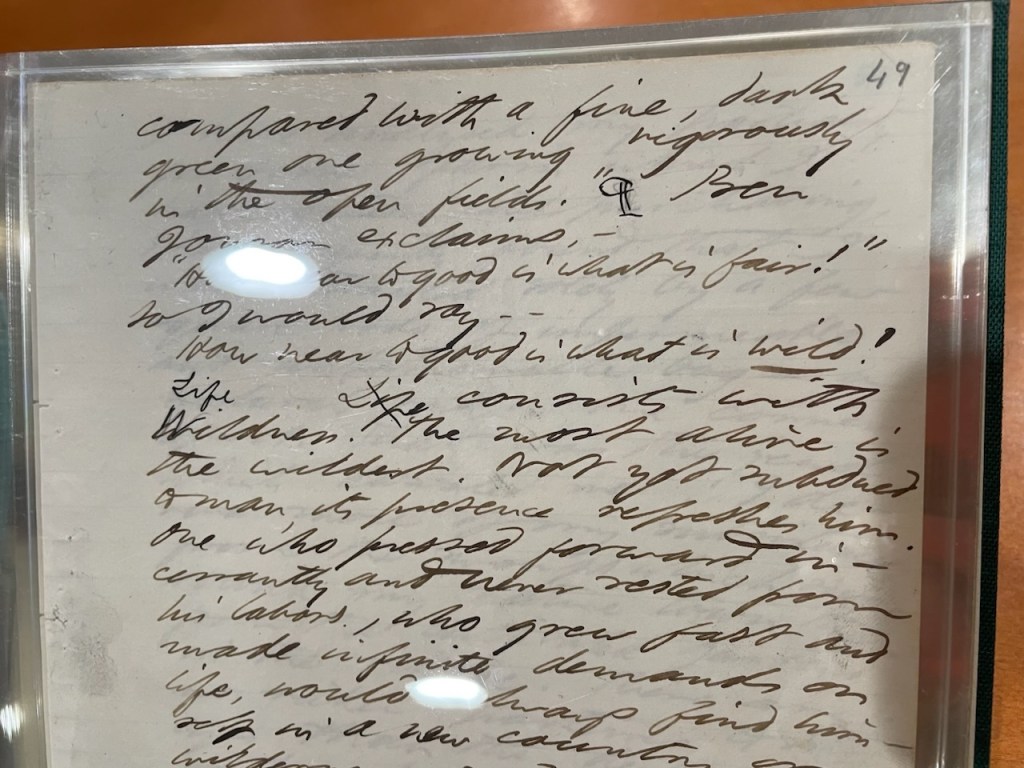 49
compared with a fine, dark
green one growing vigorously
in the open fields." ¶ Ben
exclaims,—
to good is what is fair!"
So I would say --
How near to good is what is wild!
Life Life consists with
Wildness. The most alive is
the wildest. Not yet subdued
to man, its presence refreshes him.
One who pressed forward in-
cessantly and never rested from
his labors, who grew fast and
made infinite demands on
life, would always find him-
self in a new country or